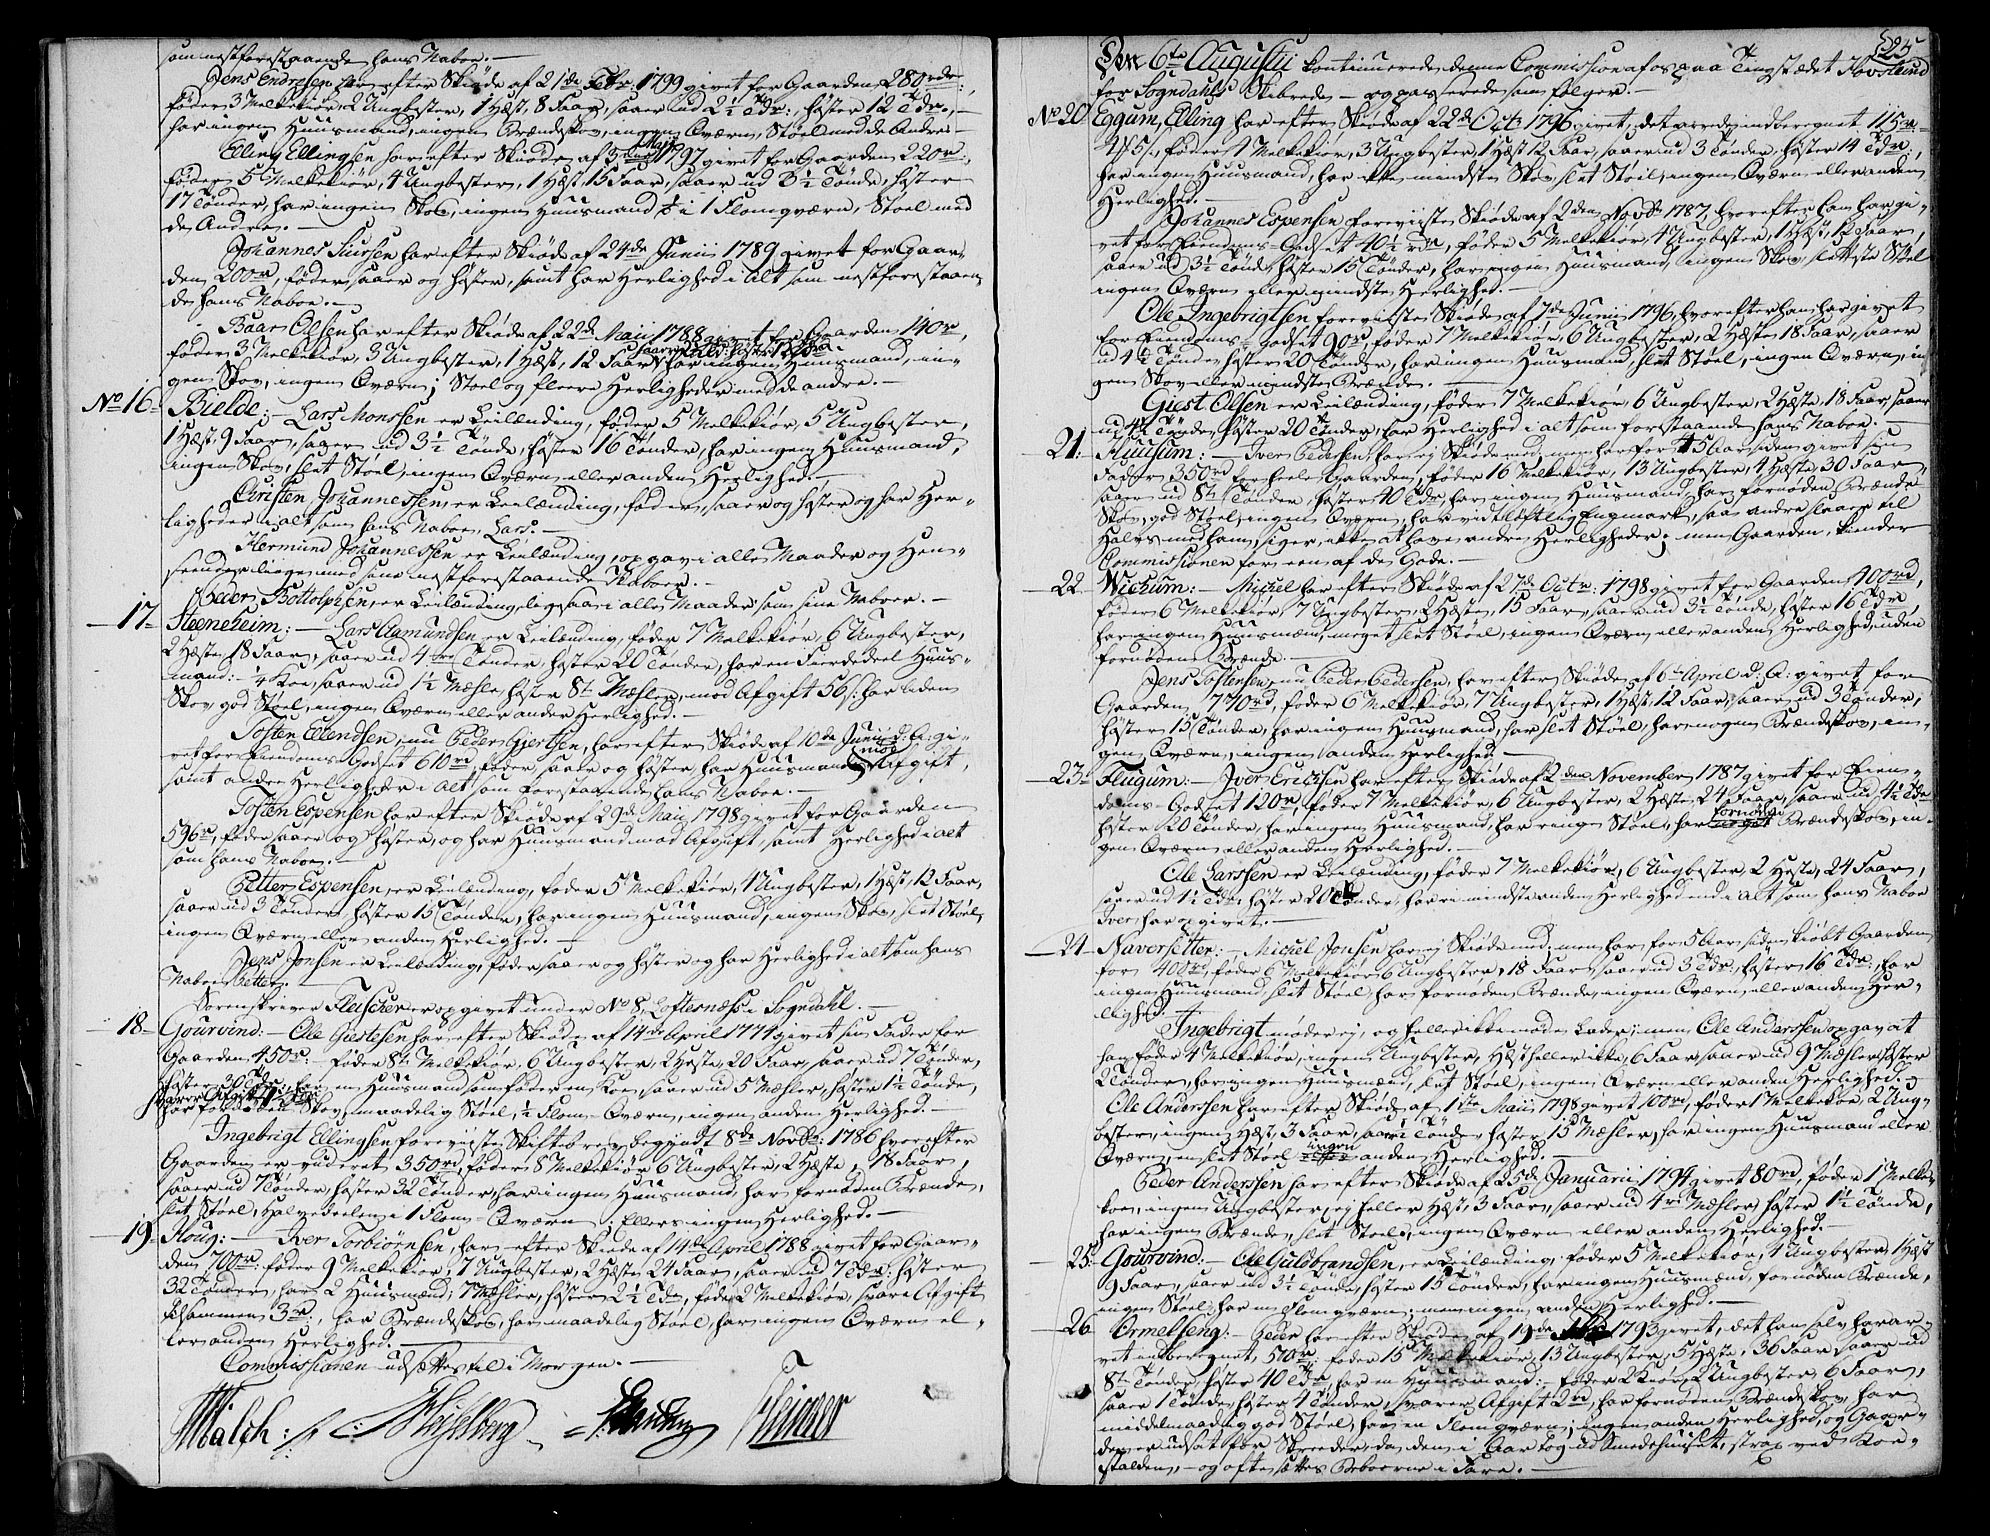 som nestforestaaende hans Naboe. —
Jens Endresen har efter Skiøde af 21de Febr: 1799 givet for Gaarden 280rdr:,
føder 3 Melkekiør, 2 Ungbester, 1 Hæst, 8 Faar, saaer ud 2½ Tdr:, høster 12 Tdr., —
har ingen Huusmand, ingen Brændeskov, ingen Qværn, Støel med de Andre. —
Elling Ellingsen har efter Skiøde af 3die Maji 1797 givet for Gaarden 220r:,
føder 5 Melkekiør, 4 Ungbester, 1 Hæst, 15 Faar, saaer ud 3½ Tønde, høster
17 Tønder, har ingen Skov, ingen Huusmand, ½ i 1 Flomqværn, Støel med
de Andre. —
Johannes Siursen har efter Skiøde af 24de Junii 1789 givet for Gaar-
den 200rd, føder, saaer og høster, samt har Herlighed i alt som nestforestaaen
de hans Naboe. —
Baar Olsen har efter Skiøde af 22de Maii 1788 givet for Gaarden 140rd,
føder 3 Melkekiør, 3 Ungbester, 1 Hæst, 12 Faar, har ingen Huusmand, in-
gen Skov, ingen Qværn; Støel og fleere Herligheder med de andre. —
No 16. Bielde: — Lars Monssen er Leilænding, føder 5 Melkekiør, 5 Ungbester,
1 Hæst, 9 Faar, saaer ud 3½ Tønde, høster 16 Tønder, har ingen Huusmand,
ingen Skov, slet Støel, ingen Qværn eller anden Herlighed. —
Christen Johannessen, er Leilænding, føder, saaer og høster og har Her-
ligheder i alt som hans Naboe, Lars. —
Hermund Johannessen er Leilænding, opgav i alle Maader og Hen-
seender liige med sine nestforestaaende Naboer. —
Peder Bottolphsen, er Leilænding, ligesaa i alle Maader som sine Naboer. —
17. Steeneheim: — Lars Aamundsen er Leilænding, føder 7 Melkekiør, 6 Ungbester,
2 Hæste, 18 Faar, saaer ud 4re Tønder, høster 20 Tønder, har en Fierdedeel Huus-
mand: — ¼ Koe, saaer ud 1½ Mæle, høster 8te Mæler, mod Afgift 56s: har liden
Skov, god Støel, ingen Qværn eller anden Herlighed. —
Tosten Ellendsen, nu Peder Giertsen, har efter Skiøde af 10de Junii d: A: gi-
vet for Eiendoms Godset 610rd, føder, saaer og høster, har Huusmand mod Afgift,
samt anden Herligheder i alt som forestaaende hans Naboe. —
Tosten Espensen har efter Skiøde af 29de Maii 1798 givet for Gaarden
596rd, føder saaer og høster, og har Huusmand mod Afgift, samt Herlighed i alt
som hans Naboe. —
Petter Espensen, er Leilænding, føder 5 Melkekiør, 4 Ungbester, 1 Hæst, 12 Faar,
saaer ud 3 Tønder, høster 15 Tønder, har ingen Huusmand, ingen Skov, slet Støel,
ingen Qværn eller anden Herlighed. —
Jens Jonsen er Leilænding, føder saaer og høster og har Herlighed i alt som hans
Naboe Petter. —
Sorenskriver Fleischer er opgivet under No 8, Loftesnæs i Sogndahl. —
18. Gourvind: — Ole Giestesen har efter Skiøde af 14de April 1774 givet sin Fader for
Gaarden 450rd: — føder 8te Melkekiør, 6 Ungbester, 2 Hæste, 20 Faar, saaer ud 7 Tønder,
høster 30 Tdr:, har en Huusmand som føder en Koe, saaer ud 5 Mæler, høster 1½ Tønde,
har fornøden Skov, maadelig Støel, ½ Flom-Qværn, ingen anden Herlighed. —
Ingebrigt Ellingsen foreviiste Skiftebrev begyndt 8de Novbr: 1786 hvorefter
Gaarden er vuderet 350rd, føder 8 Melkekiør, 6 Ungbester, 2 Hæste, 18 Faar,
saaer ud 7 Tønder, høster 32 Tønder, har ingen Huusmand, har fornøden Brænde,
slet Støel, Halvedeelen i 1 Flom-Qværn; Ellers ingen Herlighed. —
19. Houg: — Iver Torbiørnsen, har efter Skiøde af 14de April 1788 givet for Gaar-
den 700rd: føder 9 Melkekiør, 7 Ungbester, 2 Hæste, 24 Faar, saaer ud 7 Tdr: høster
32 Tønder, har 2 Huusmænd; 7 Mæler, høster 2½ Tdr, føder 2 Melkekiør, svare Afgift
tilsammen 3rd:, har Brændeskov, har maadelig Støel, har ingen Qværn el-
ler anden Herlighed. —
Commissionen udsættes til i Morgen. —
Malch: Hesselberg
525
Den 6te Augustii kontinuerede denne Commission af os paa Tingstædet Hovslund
for Sogndahls Skibrede — og passerede som følger. —
No 20. Eggum, Elling har efter Skiøde af 22de Octr 1796 givet, det arvede indberegnet 115rd
føder 4 Melkekiør, 3 Ungbester, 1 Hæst, 12 Faar, saaer ud 3 Tønder, høster 14 Tdr:,
har ingen Huusmand, har ikke mindste Skov, slet Støel, ingen Qværn eller anden
Herlighed. —
Johannes Espensen foreviiste Skiøde af 2den Novbr 1787, hvorefter han har gi-
vet for Eiendoms-Godset 40½ rdr, føder 5 Melkekiør, 4 Ungbester, 1 Hæst, 12 Faar,
saaer ud 3½ Tønde, høster 15 Tønder, har ingen Huusmand, ingen Skov, slætste Støel
ingen Qværn eller mindste Herlighed. —
Ole Ingebrigtsen foreviiste Skiøde af 7de Junii 1796, hvorefter han har givet
for Eiendoms-Godset 90rd, føder 7 Melkekiør, 6 Ungbester, 2 Hæste, 18 Faar, saaer
ud 4½ Tønde, høster 20 Tønder, har ingen Huusmand, slet Støel, ingen Qværn, in
gen Skov eller mindste Brænde. —
Giest Olsen er Leilænding, føder 7 Melkekiør, 6 Ungbester, 2 Hæste, 18 Faar, saaer
ud 4½ Tønde, høster 20 Tønder, har Herlighed i alt som forestaaende hans Naboe. —
21. Huusum: — Iver Pedersen har ej Skiøde med, men har for 15 Aar siden givet sin
Fader 350rd for heele Gaarden, føder 16 Melkekiør, 13 Ungbester, 4 Hæste, 30 Faar
saaer ud 8te Tønder, høster 40 Tdr, har ingen Huusmand, har fornøden Brænde
Skov, god Støel, ingen Qværn, har vidtløftlig Engmark, saa andre slaaer til
Halvs med ham, siger, ikke at have andre Herligheder; men Gaarden kiender
Commissionen for een af de Gode. —
22. Wichum: — Michel har efter Skiøde af 27de Octr: 1798 givet for Gaarden 400rd,
føder 6 Melkekiør, 7 Ungbester, 2 Hæste, 15 Faar, saaer ud 3½ Tønde, høster 16 Tdr,
har ingen Huusmand, meget slet Støel, ingen Qværn eller anden Herlighed, uden
fornødene Brænde. —
Jens Tostensen, nu Peder Pedersen, har efter Skiøde af 6te April d: A: givet for
Gaarden 770rd, føder 6 Melkekiør, 7 Ungbester, 1 Hæst, 12 Faar, saaer ud 3 Tønder,
høster 15 Tønder, har ingen Huusmand, har slet Støel, har nogen Brændeskov, in-
gen Qværn, ingen anden Herlighed. —
23. Flugum: — Iver Erichsen har efter Skiøde af 2den November 1787 givet for Eien-
doms-Godset 120rd, føder 7 Melkekiør, 6 Ungbester, 2 Hæste, 24 Faar, saaer ud 4½ Tdr
høster 20 Tønder, har ingen Huusmand, har ingen Støel, har fornøden Brændeskov, in-
gen Qværn eller anden Herlighed. —
Ole Larssen er Leilænding, føder 7 Melkekiør, 6 Ungbester, 2 Heste, 24 Faar,
saaer ud 4½ Tdr, høster 20 Tønder, har i mindste anden Herlighed end i alt som hans Naboe
Iver har opgivet. —
24. Naversetter: — Michel Jonsen har ej Skiøde med; men har for 5 Aar siden kiøbt Gaarden
for 400rd, føder 6 Melkekiør, 6 Ungbester, 18 Faar, saaer ud 3 Tdr:, høster 16 Tdr:, har
ingen Huusmand, slet Støel, har fornøden Brænde, ingen Qværn, eller anden Her-
lighed. —
Ingebrigt møder ej, og heller ikke nogen Lader; men Ole Anderssen opgav at
han føder 4 Melkekiør, ingen Ungbester, Hæst heller ikke, 6 Faar, saaer ud 9 Mæler, høster
2 Tønder, har ingen Huusmænd, slet Støel, ingen Qværn eller anden Herlighed. —
Ole Anderssen har efter Skiøde af 1ste Maii 1798 givet 100rd, føder 1 Melkekoe, 2 Ung-
bester, ingen Hæst, 3 Faar, saaer 1 Tønde, høster 15 Mæler, har ingen Huusmand eller
Qværn, en slet Støel ingen anden Herlighed. —
Peder Anderssen har efter Skiøde af 25de Januarii 1794 givet 80rd, føder 1 Melke-
koe, ingen Ungbester, ej heller Hæst, 3 Faar, saaer ud 4re Mæler, høster 1½ Tønde,
har ingen Brænde, slet Støel, ingen Qværn eller anden Herlighed. —
25. Gourvind: — Ole Guldbrandsen, er Leilænding, føder 5 Melkekiør, 4 Ungbester, 1 Hæst
9 Faar, saaer ud 3½ Tønde, høster 15 Tønder, har ingen Huusmænd, fornøden Brænde,
ingen Støel, har en Flomqværn; men ingen anden Herlighed. —
26. Ormelseng: — Peder har efter Skiøde af 19de 1793 givet, det han selv har ar-
vet indberegnet, 500rd, føder 15 Melkekiør, 13 Ungbester, 5 Hæste, 36 Faar, saaer ud
8te Tønder, høster 40 Tdr, har en Huusmand: — føder 2 Kiør, 2 Ungbester, 6 Faar,
saaer 1 Tønde, høster 4 Tønder, svarer Afgift 2rd, har fornøden Brændeskov, har
middelmaadig god Støel, har en Flomqværn; ingen anden Herlighed, og Gaar-
den er udsat for Skreeder, da den i Aar tog ud Smedehuuset, strax ved Koe-
stalden, — og ofte sættes Beboerne i Fare. —